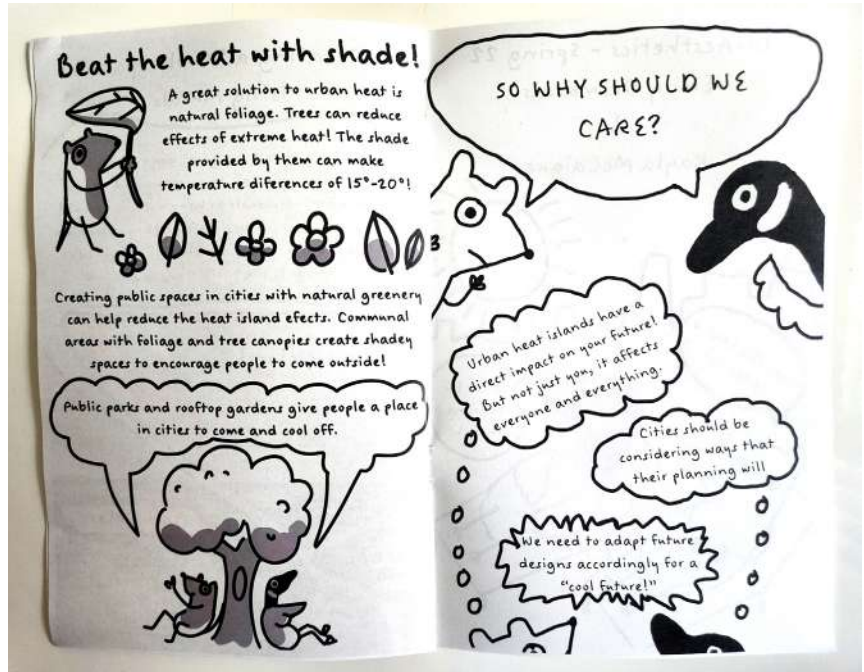 Beat the heat with shade!
A great solution to urban heat is
natural foliage. Trees can reduce
effects of extreme heat! The shade
provided by them can make
temperature diferences of 15°-20°!
Creating public spaces in cities with natural greenery
can help reduce the heat island efects. Communal
areas with foliage and tree canopies create shadey
spaces to encourage people to come outside!
Public parks and rooftop gardens give people a place
in cities to come and cool off.
SO WHY SHOULD WE
CARE?
Urban heat islands have a
direct impact on your future!
But not just you, it affects
everyone and everything.
Cities should be
considering ways that
their planning will
We need to adapt future
designs accordingly for a
"cool future!"